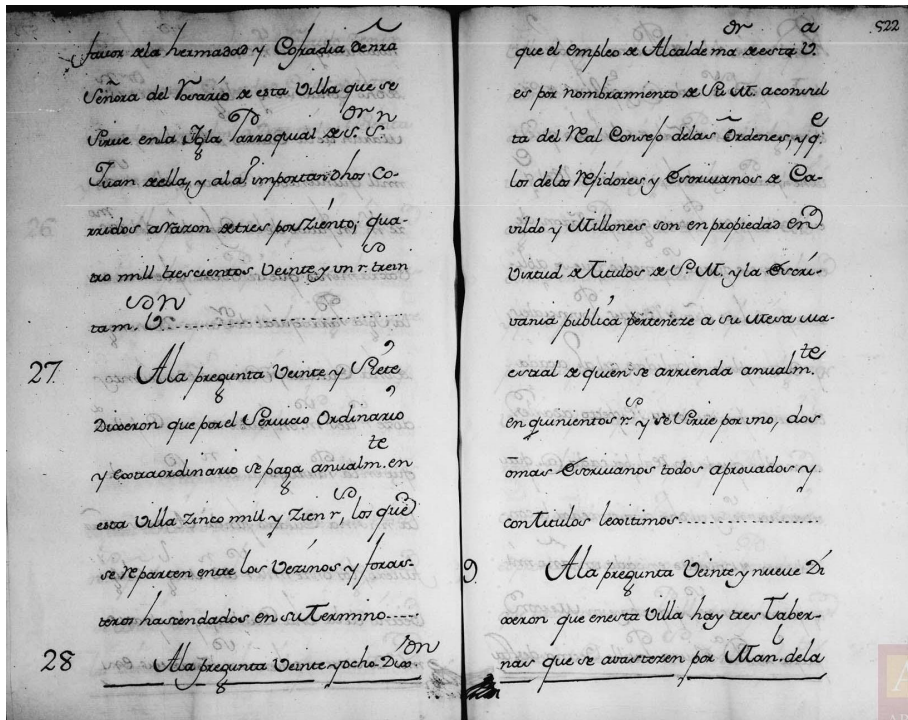 favor dela hermadad y Cofradia de nrã
Señora del Rosario de esta Villa que se
Sirve en la Ygla Parroqual de Sr. Sn
Juan de ella, y al al importan dhos Co-
rridos a razon de tres por Ziento, qua-
tro mill trescientos Veinte y un rs. trein
ta m.s Vn
27 Ala pregunta Veinte y Siete
Dixeron que por el Servicio Ordinario
y Extraordinario se paga anualm.te en
esta Villa Zinco mill y Zien rs, los que
se reparten entre los Vezinos y foras-
teros hascendados en su Termino
28 Ala pregunta Veinte y ocho Dixeron
522
que el empleo de Alcalde maor de esta Va
es por nombramiento de Su M. a consul
ta del Real Consejo de las Ordenes, y q.e
los de los Rejidores y Escrivanos de Ca-
vildo y Millones son en propiedad en
Virtud de Titulos de S. M. y la Escri-
vania publica perteneze a su Mesa Ma-
estral de quien se arrienda anualm.te
en quinientos rs. y se Sirve por uno, dos
o mas Escrivanos todos aprovados y
con Titulos lexitimos
9 Ala pregunta Veinte y nueve Di
xeron que en esta Villa hay tres Taber-
nas que se avasteren por Man.l de la